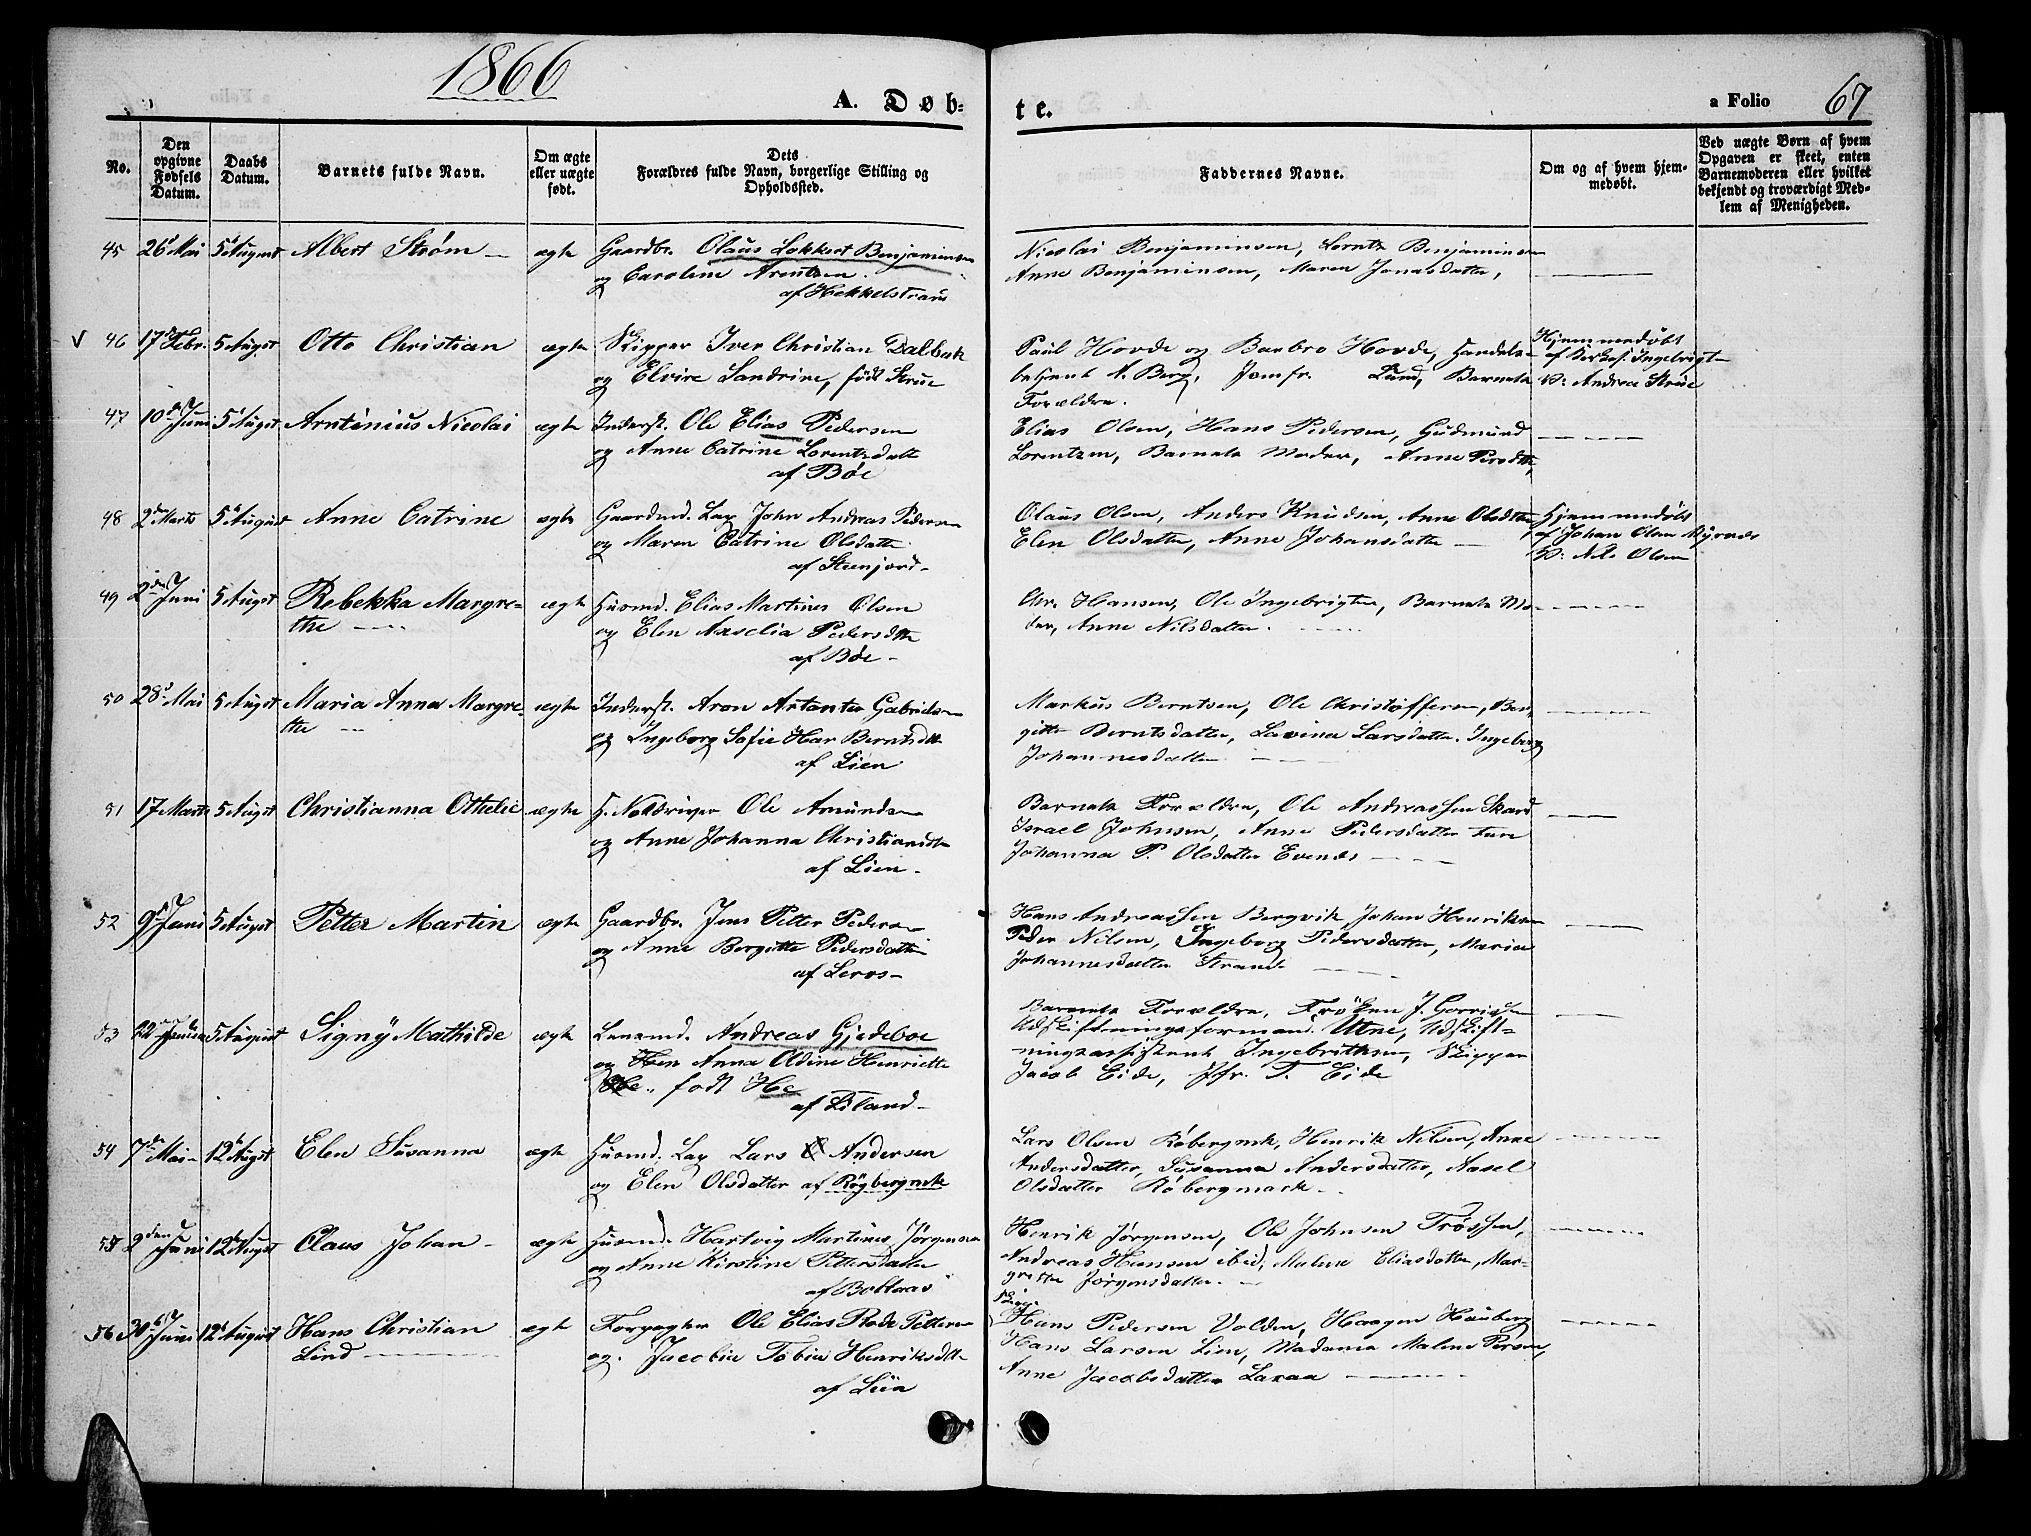 1866
A. Døb-
te.
a Folio 67
No.
Den opgivne Fødsels Datum.
Daabs Datum.
Barnets fulde Navn.
Om ægte eller uægte født.
Dets Forældres fulde Navn, borgerlige Stilling og Opholdssted.
Faddernes Navne.
Om og af hvem hjemmedøbt.
Ved uægte Børn af hvem Opgaven er skeet, enten Barnemoderen eller hvilket bekjendt og troværdigt Medlem af Menigheden.
45 26 Mai 5 August Albert Strøm ægte Gaardbr. Olaus Lokkert Benjaminsen
og Caroline Arentsen
af Hekkelstrand
Nicolai Benjaminsen, Lorntz Benjaminsen
Anne Benjaminsen, Maren Jonasdatter,
46 17 Febr. 5 August Otto Christian ægte Skipper Iver Christian Dalbak
og Elvire Sandrine, født Strue
Paul Hovde og Barbro Hovde, Handels-
betjent N. Berg, Jomfr. Lund, Barnets
Forældre.
Hjemmedøbt
af Kirkes. Ingebrigts
V: Andrea Strue
47 10 Juni 5 August Arntinius Nicolai ægte Inderst. Ole Elias Pedersen
og Anne Catrine Lorentzdatt
af Bøe
Elias Olsen, Hans Pedersen, Gudmund
Lorentzen, Barnets Moder, Anne Persdtt,
48 2 Marts 5 August Anne Catrine ægte Gaardmd. Lap John Andreas Pedersen
og Maren Catrine Olsdatter
af Steenjord
Olaus Olsen, Anders Knudsen, Anne Olsdtter
Elen Olsdatter, Anne Johansdatter
Hjemmedøbt
af Johan Olsen Myrnes
V: Nils Olsen
49 2 Juni 5 August Rebekka Margre-
the
ægte Husmd. Elias Martines Olsen
og Elen Axselia Pedersdtt
af Bøe
Chr. Hansen, Ole Ingebrigtsen, Barnets Mo-
der, Anne Nilsdatter.
50 28 Mai 5 August Maria Anna Margre-
the
ægte Inderst. Aron Gabrielsen
og Ingeborg Sofie Berntsdtt
af Lien
Markus Berntsen, Ole Christoffersen, Ber-
gitte Berntsdatter, Lavina Larsdatter, Ingeborg
Johannesdatter
51 17 Marts 5 August Christianna Othelie ægte Ole Amundsen
og Anne Johanna Christiansdtr
af Lien
Barnets Forældre, Ole Andreassen Skard
Israel Johnsen, Anne Pedersdatter
Johanna P. Olsdatter Evenes
52 9 Juni 5 August Petter Martin ægte Gaardbr. Jens Petter Pedersen
og Anne Bergitte Pedersdatter
af Leros
Hans Andreassen Bergvik, Johan Henriksen
Peder Nilsen, Ingeborg Pedersdatter, Maria
Johannesdatter Strand
53 22 5 August Signÿ Mathilde ægte Lensmd. Andreas Gjedeboe
og Anna Oldine Henriette
født He
af Liland
Barnets Forældre, Frøken J. Gorrissen
Udskiftningsformand Utne, Udskift-
ningsassistent Ingebrithsen, Skipper
Jacob Eide, Jfr. T. Eide
54 7 Mai 12 August Elen Susanna ægte Husmd. Lap Lars Andersen
og Elen Olsdatter af Røgbergmk
Lars Olsen Røbergmk, Henrik Nilsen, Anne
Andersdatter, Susanna Andersdatter, Axsel
Olsdatter Røbergmark
55 2 Juni 12 August Claus Johan ægte Husmd. Hartvig Martines Jørgensen
og Anne Kirstine Pettersdatter
af Botteraas
Henrik Jørgensen, Ole Johnsen Trøssen,
Andreas Hansen ibid, Malene Eliasdatter, Mar-
grethe Jørgensdatter.
56 30 Juni 12 August Hans Christian
Lind
ægte Forpagter Ole Elias Rode Pettersen
og Jacobia Tobia Henriksdtt
af Liia
Hans Pedersen Volden, Haagen Hauberg
Hans Larsen Lien, Madama Malene Persen,
Anne Jacobsdatter Laxaa